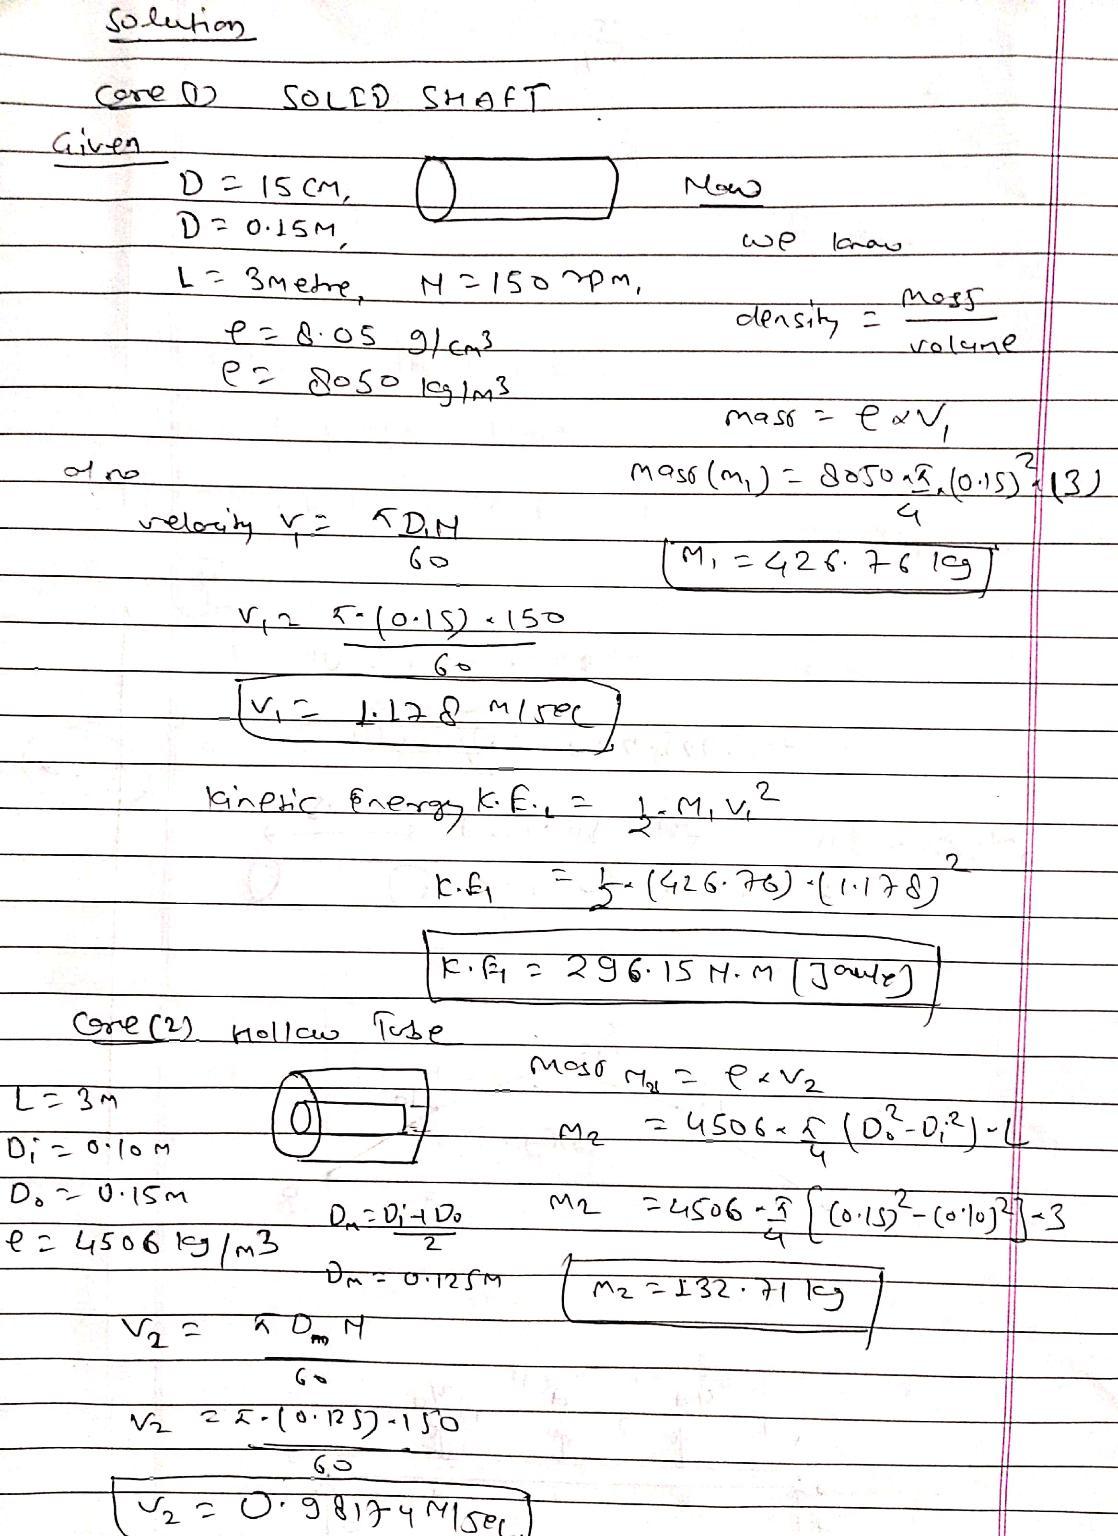 Solution
Case (1) SOLID SHAFT
Given
D = 15 cm,
D = 0.15 M,
L = 3 metre, N = 150 rpm,
ρ = 8.05 g/cm³
ρ = 8050 kg/m³
Now
we know
density = mass / volume
mass = ρ × V₁
mass (m₁) = 8050 × π/4 × (0.15)² × (3)
M₁ = 426.76 kg
also
velocity V₁ = πD₁N / 60
V₁ = π × (0.15) × 150 / 60
V₁ = 1.178 m/sec
Kinetic Energy K.E.₁ = 1/2 × M₁V₁²
K.E₁ = 1/2 × (426.76) × (1.178)²
K.E₁ = 296.15 N.m (Joule)
Case (2) Hollow Tube
L = 3m
Di = 0.10 m
Do = 0.15m
ρ = 4506 kg/m3
Dm = Di + Do / 2
Dm = 0.125 m
mass M₂ = ρ × V₂
M₂ = 4506 × π/4 (Do² - Di²) × L
M₂ = 4506 × π/4 [(0.15)² - (0.10)²] × 3
M₂ = 132.71 kg
V₂ = π Dm N / 60
V₂ = π × (0.125) × 150 / 60
V₂ = 0.98174 M/sec